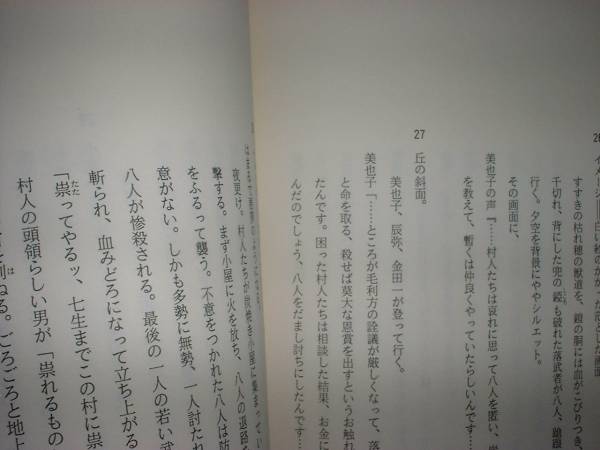 イメージ
すすきの枯れ穂の獣道を、鎧の胴には血がこびりつき、
千切れ、背にした兜の錣も破れた落武者が八人、踉蹌
行く。夕空を背景にややシルエット。
その画面に、
美也子の声『……村人たちは哀れに思って八人を匿い、
を教えて、暫くは仲良くやっていたらしいんです…
27 丘の斜面。
美也子、辰弥、金田一が登って行く。
美也子「……ところが毛利方の詮議が厳しくなって、落
と命を取る、殺せば莫大な恩賞を出すというお触れ
たんです。困った村人たちは相談した結果、お金に
んだのでしょう、八人をだまし討ちにしたんです：
夜更け。村人たちが炭焼き小屋に集まってい
撃する。まず小屋に火を放ち、八人の退路を
をふるって襲う。不意をつかれた八人は防
意がない。しかも多勢に無勢、一人討たれ
八人が惨殺される。最後の一人の若い武
斬られ、血みどろになって立ち上がる
「祟ってやるッ、七生までこの村に祟
村人の頭領らしい男が「祟れるもの
刎ねる。ごろごろと地上